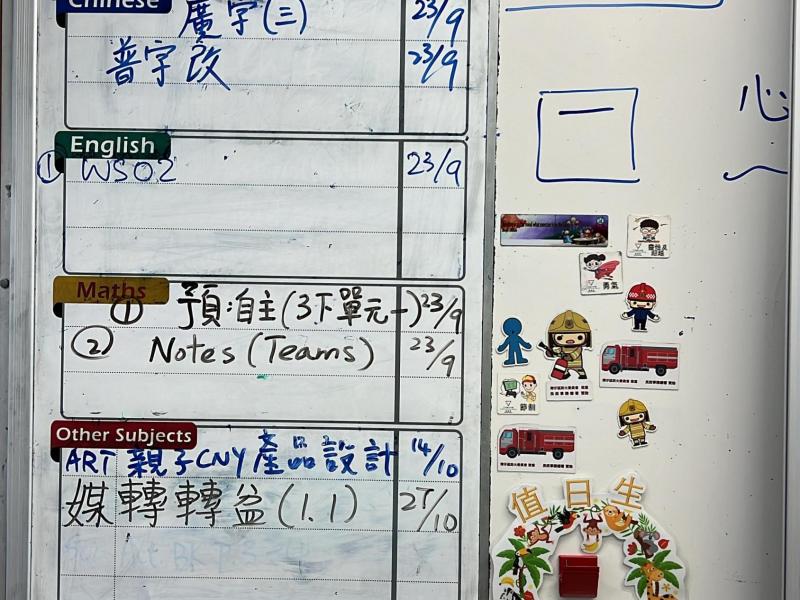 Chinese
廣字(三) 23/9
普字改 23/9
English
① WS02 23/9
Maths
① 預:自主(3下單元一) 23/9
② Notes (Teams) 23/9
Other Subjects
ART 親子CNY產品設計 14/10
媒轉轉益(1.1) 27/10
一
心
勇氣
節制
值日生